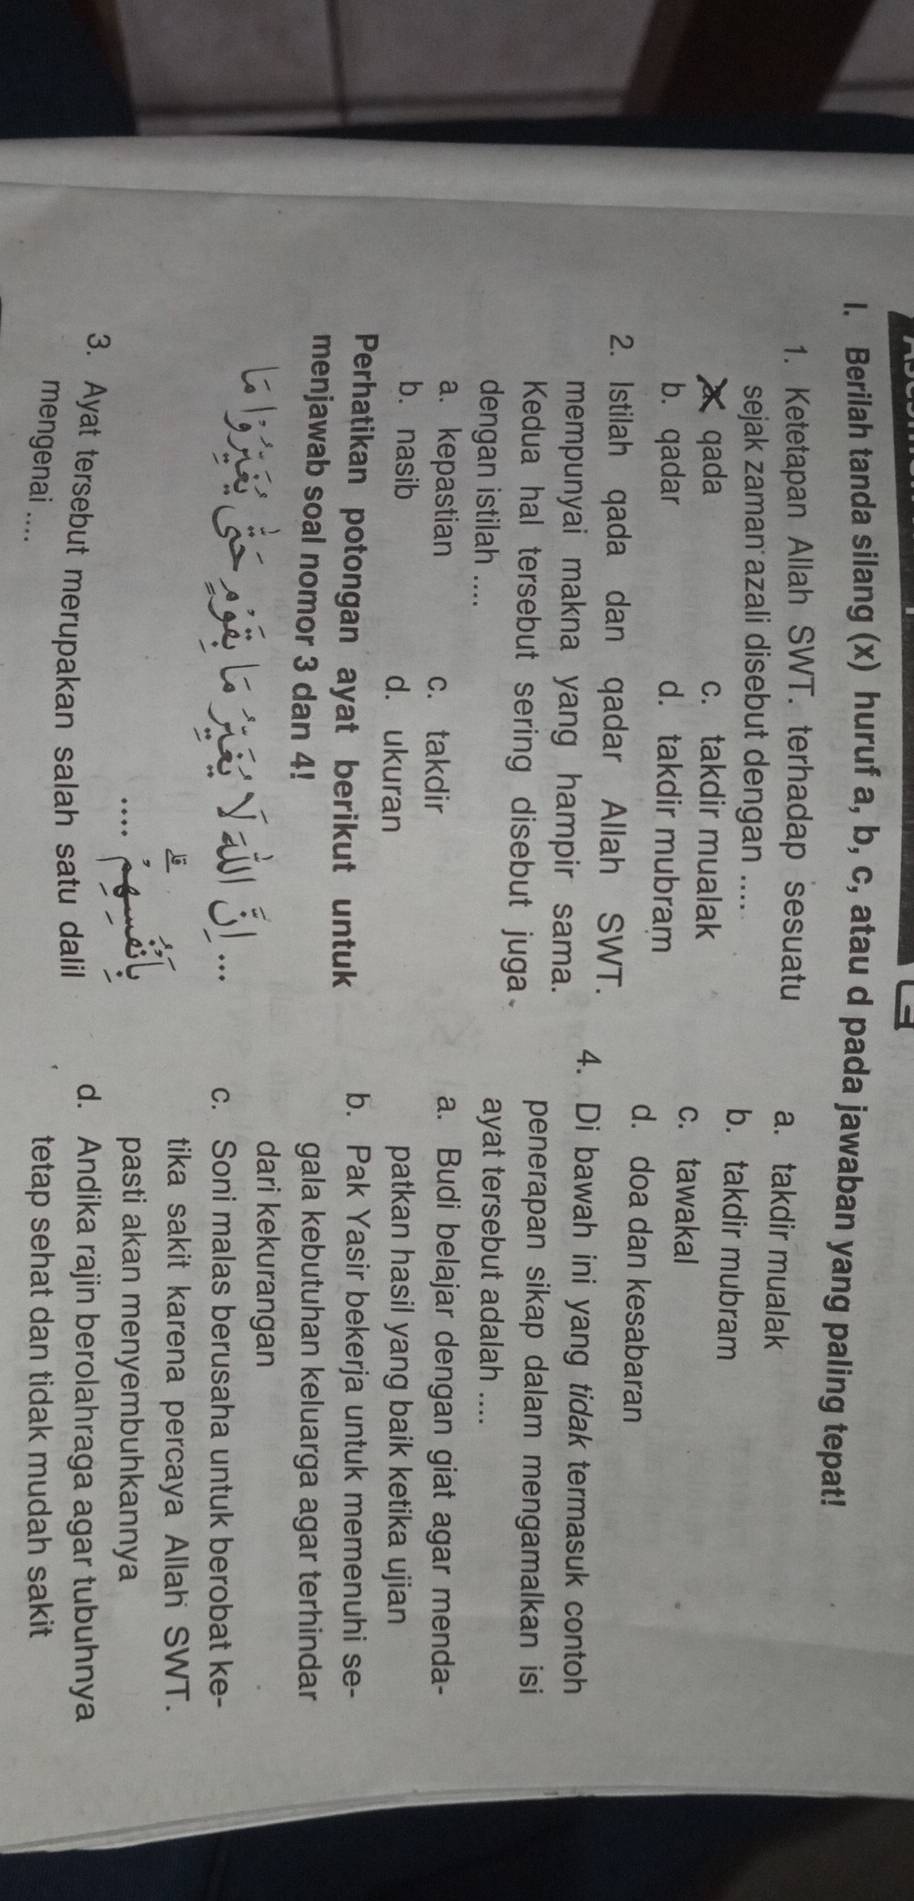 I. Berilah tanda silang (x) huruf a, b, c, atau d pada jawaban yang paling tepat!
1. Ketetapan Allah SWT. terhadap sesuatu
sejak zaman azali disebut dengan ....
a. qada
c. takdir mualak
b. qadar
d. takdir mubram
2. Istilah qada dan qadar Allah SWT.
mempunyai makna yang hampir sama.
Kedua hal tersebut sering disebut juga
dengan istilah ....
a. kepastian
c. takdir
b. nasib
d. ukuran
Perhatikan potongan ayat berikut untuk
menjawab soal nomor 3 dan 4!
... اِنَّ اللّٰهَ لَا يُغَيِّرُ مَا بِقَوْمٍ حَتّٰى يُغَيِّرُوْا مَا
بِاَنْفُسِهِمْ ۗ ....
3. Ayat tersebut merupakan salah satu dalil
mengenai ....
a. takdir mualak
b. takdir mubram
c. tawakal
d. doa dan kesabaran
4. Di bawah ini yang tidak termasuk contoh
penerapan sikap dalam mengamalkan isi
ayat tersebut adalah ....
a. Budi belajar dengan giat agar menda-
patkan hasil yang baik ketika ujian
b. Pak Yasir bekerja untuk memenuhi se-
gala kebutuhan keluarga agar terhindar
dari kekurangan
c. Soni malas berusaha untuk berobat ke-
tika sakit karena percaya Allah SWT.
pasti akan menyembuhkannya
d. Andika rajin berolahraga agar tubuhnya
tetap sehat dan tidak mudah sakit